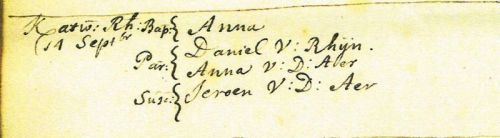 Katw: Rh: Bap: { Anna
14 Septbr
Par: { Daniel V: Rhijn.
Anna V: D: Aer
Susc: { Jeroen V: D: Aer